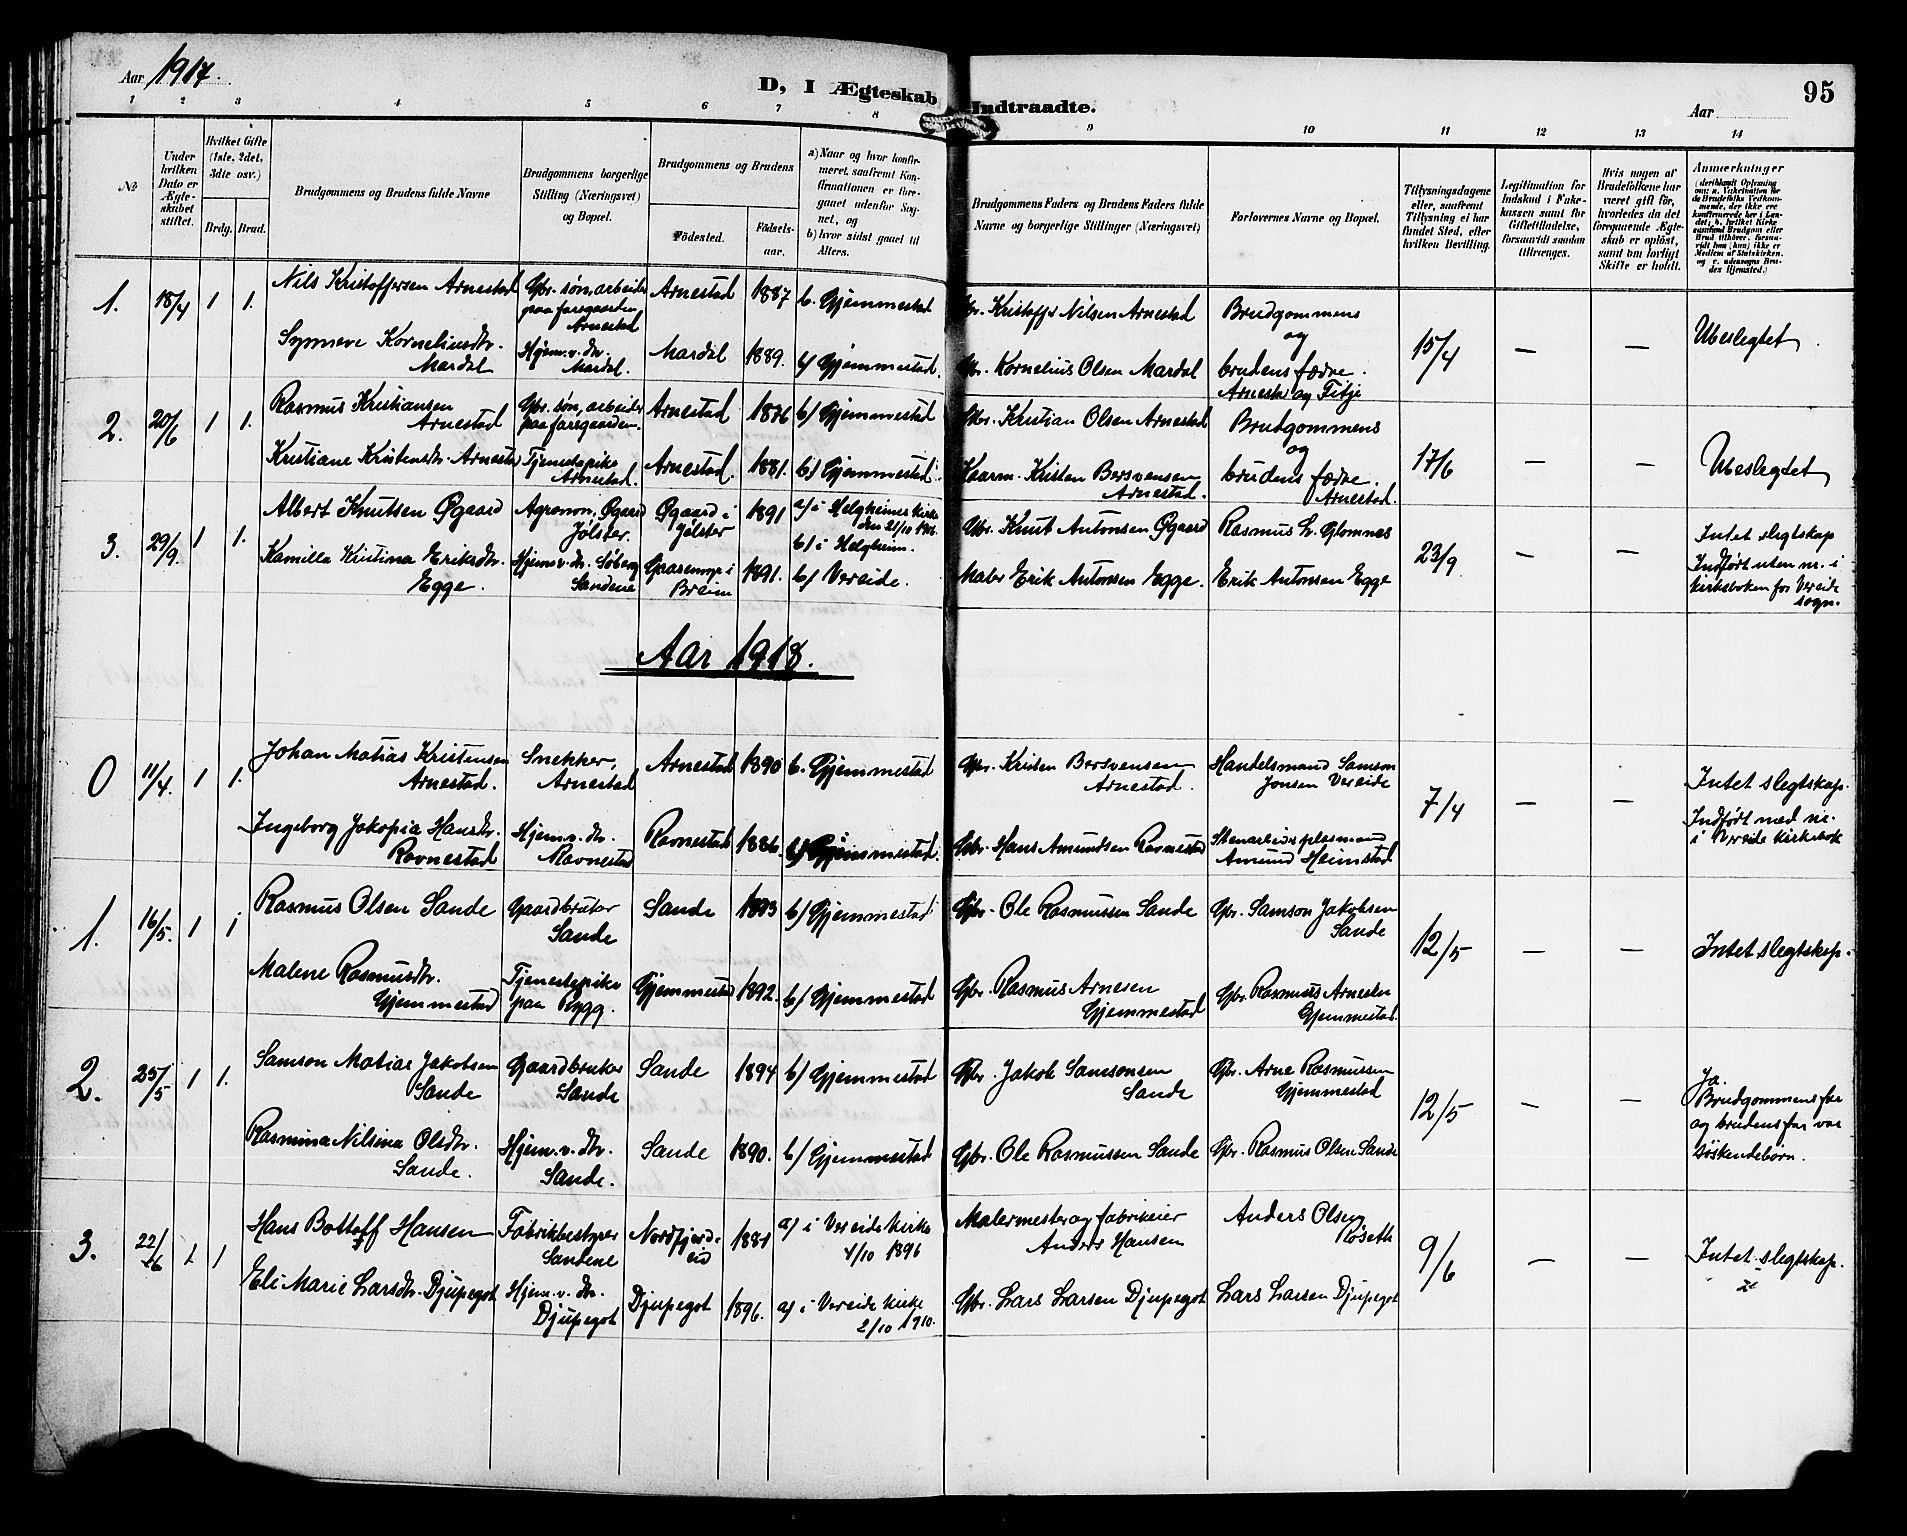 Aar 1917.
D, I Ægteskab Indtraadte.
Aar
95
1 2 3 4 5 6 7 8 9 10 11 12 13 14
№
Under hvilken Dato er Ægteskabet stiftet.
Hvilket Gifte (1ste, 2det, 3die osv.)
Brdg. Brud.
Brudgommens og Brudens fulde Navne
Brudgommens borgerlige Stilling (Næringsvei) og Bopæl.
Brudgommens og Brudens
Fødested.
Fødselsaar.
a) Naar og hvor konfirmeret, saafremt Konfirmationen er foregaaet udenfor Sognet, og
b) hvor sidst gaaet til Alters.
Brudgommens Faders og Brudens Faders fulde Navne og borgerlige Stillinger (Næringsvei)
Forlovernes Navne og Bopæl.
Tillysningsdagene eller, saafremt Tillysning ei har fundet Sted, efter hvilken Bevilling.
Legitimation for Indskud i Enkekassen samt for Giftetilladelse, forsaavidt saadan tiltrænges.
Hvis nogen af Brudefolkene har været gift før, hvorledes da det foregaaende Ægteskab er opløst, samt om lovligt Skifte er holdt.
Anmerkninger
1. 18/4 1 1.
Nils Kristoffersen Arnestad
Gbr. søn, arbeider paa farsgaarden Arnestad
Arnestad 1887 b. Gjemmestad
Gbr. Kristoffer Nilsen Arnestad
Brudgommens og brudens fædre. Arnestad og Fitje
15/4 — —
Ubeslegtet
Synneve Korneliusdtr. Mardal
Hjem.v. dtr. Mardal.
Mardal 1889. b/ Gjemmestad.
Gbr. Kornelius Olsen Mardal
2. 20/6 1 1.
Rasmus Kristiansen Arnestad
Gbr. søn, arbeider paa farsgaarden.
Arnestad 1876 b/ Gjemmestad
Gbr. Kristian Olsen Arnestad
Brudgommens og brudens fædre. Arnestad.
17/6 — —
Ubeslegtet
Kristiane Kristensdtr. Arnestad
Tjenestepike Arnestad.
Arnestad. 1881. b/ Gjemmestad.
Kaarm. Kristen Bersvensen Arnestad.
3. 29/9. 1 1.
Albert Knutsen Øgaard
Agronom, Øgaard Jølster.
Øgaard i Jølster 1891
a/ i Helgheims kirke den 21/10 1906.
b/ i Helgheim.
Gbr. Knut Antonsen Øgaard
Rasmus L. Glomnes
23/9 — —
Intet slegtskap
Indført uten nr. i kirkeboken for Vereide sogn.
Kamilla Kristina Eriksdtr. Egge.
Hjem.v. dtr. Søberg Sandene
Gaaremyr i Breim 1891. b/ Vereide.
Maler Erik Antonsen Egge.
Erik Antonsen Egge
Aar 1918.
0 11/4. 1 1.
Johan Matias Kristensen Arnestad.
Snekker, Arnestad
Arnestad 1890 b. Gjemmestad
Gbr. Kristen Bersvensen Arnestad.
Handelsmand Samson Jonsen Vereide
7/4 — —
Intet slegtskap.
Indført med nr. i Vereide kirkebok
Ingeborg Jakopia Hansdtr. Ravnestad
Hjem.v. dtr. Ravnestad
Ravnestad 1886. b/ Gjemmestad.
Gbr. Hans Amundsen Ravnestad
Amund Heimstad
1. 16/5. 1 1
Rasmus Olsen Sande
Gaardbruker Sande
Sande 1893 b/ Gjemmestad
Gbr. Ole Rasmussen Sande
Gbr. Samson Jakobsen Sande
12/5 — —
Intet slegtskap.
Malene Rasmusdtr. Gjemmestad
Tjenestepike paa Rygg.
Gjemmestad 1892. b/ Gjemmestad
Gbr. Rasmus Arnesen Gjemmestad
Gbr. Rasmus Arnesen Gjemmestad.
2. 25/5 1 1.
Samson Matias Jakobsen Sande
Gaardbruker Sande
Sande 1894 b/ Gjemmestad
Gbr. Jakob Samsonsen Sande
Gbr. Arne Rasmussen Gjemmestad
12/5 — —
Ja. Brudgommens far og brudens far var søskendebørn.
Rasmina Nilsina Olsdtr. Sande.
Hjem.v. dtr. Sande.
Sande 1890. b/ Gjemmestad
Gbr. Ole Rasmussen Sande
Gbr. Rasmus Olsen Sande
3. 22/6 1 1
Hans Bottolf Hansen
Fabrikbestyrer Sandene
Nordfjordeid 1881
a/ i Vereide kirke 4/10 1896
Malermester og fabrikeier Anders Hansen
Anders Olsen Røseth
9/6 — —
Intet slegtskap.
Eli Marie Larsdtr. Djupegot
Hjem.v. dtr. Djupegot
Djupegot 1896.
a/ i Vereide kirke 2/10 1910.
Gbr. Lars Larsen Djupegot
Lars Larsen Djupegot